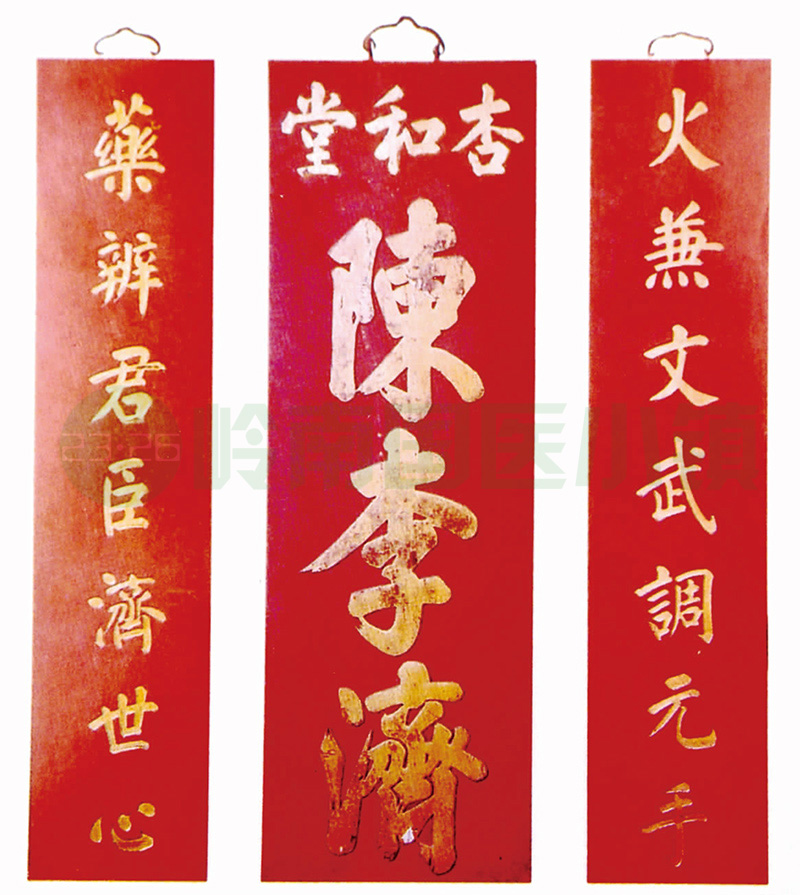 火兼文武調元手
杏和堂
陳李濟
藥辨君臣濟世心
岭南国医小镇